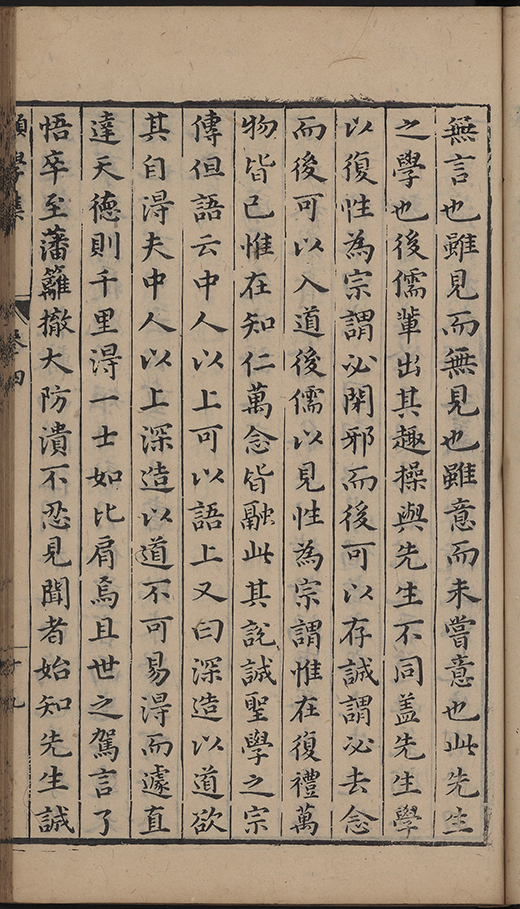 無言也雖見而無見也雖意而未嘗意也此先生
之學也後儒輩出其趣操與先生不同盖先生學
以復性為宗謂必閑邪而後可以存誠謂必去念
而後可以入道後儒以見性為宗謂惟在復禮萬
物皆己惟在知仁萬念皆融此其說誠聖學之宗
傳但語云中人以上可以語上又曰深造以道欲
其自得夫中人以上深造以道不可易得而遽直
達天德則千里得一士如比肩焉且世之駕言了
悟卒至藩籬撤大防潰不忍見聞者始知先生誠
學集 卷四 十九